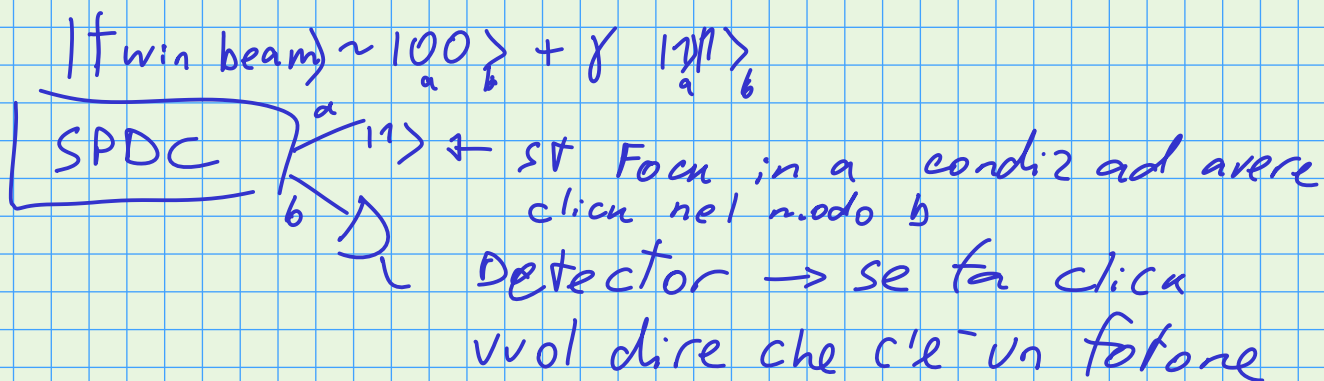 |Twin beam⟩ ~ |00⟩ + γ |11⟩
a b a b
SPDC a |1⟩ ← st Fock in a condiz ad avere
b click nel modo b
Detector → se fa click
vuol dire che c'è un fotone